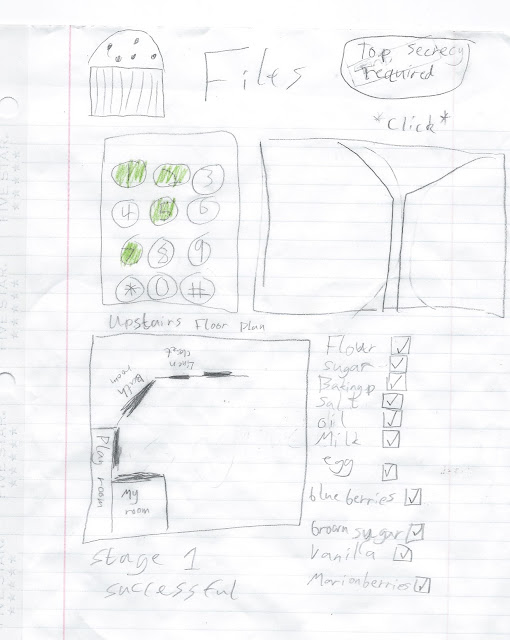 Files
Top Secrecy
required
*Click*
1 2 3
4 5 6
7 8 9
* 0 #
Upstairs Floor Plan
Linen
closet
Bath
room
Play room
My
room
Flour
sugar
Baking p
Salt
oil
Milk
egg
blueberries
brown sugar
Vanilla
Marionberries
stage 1
successful
FIVE STAR
FIVE STAR